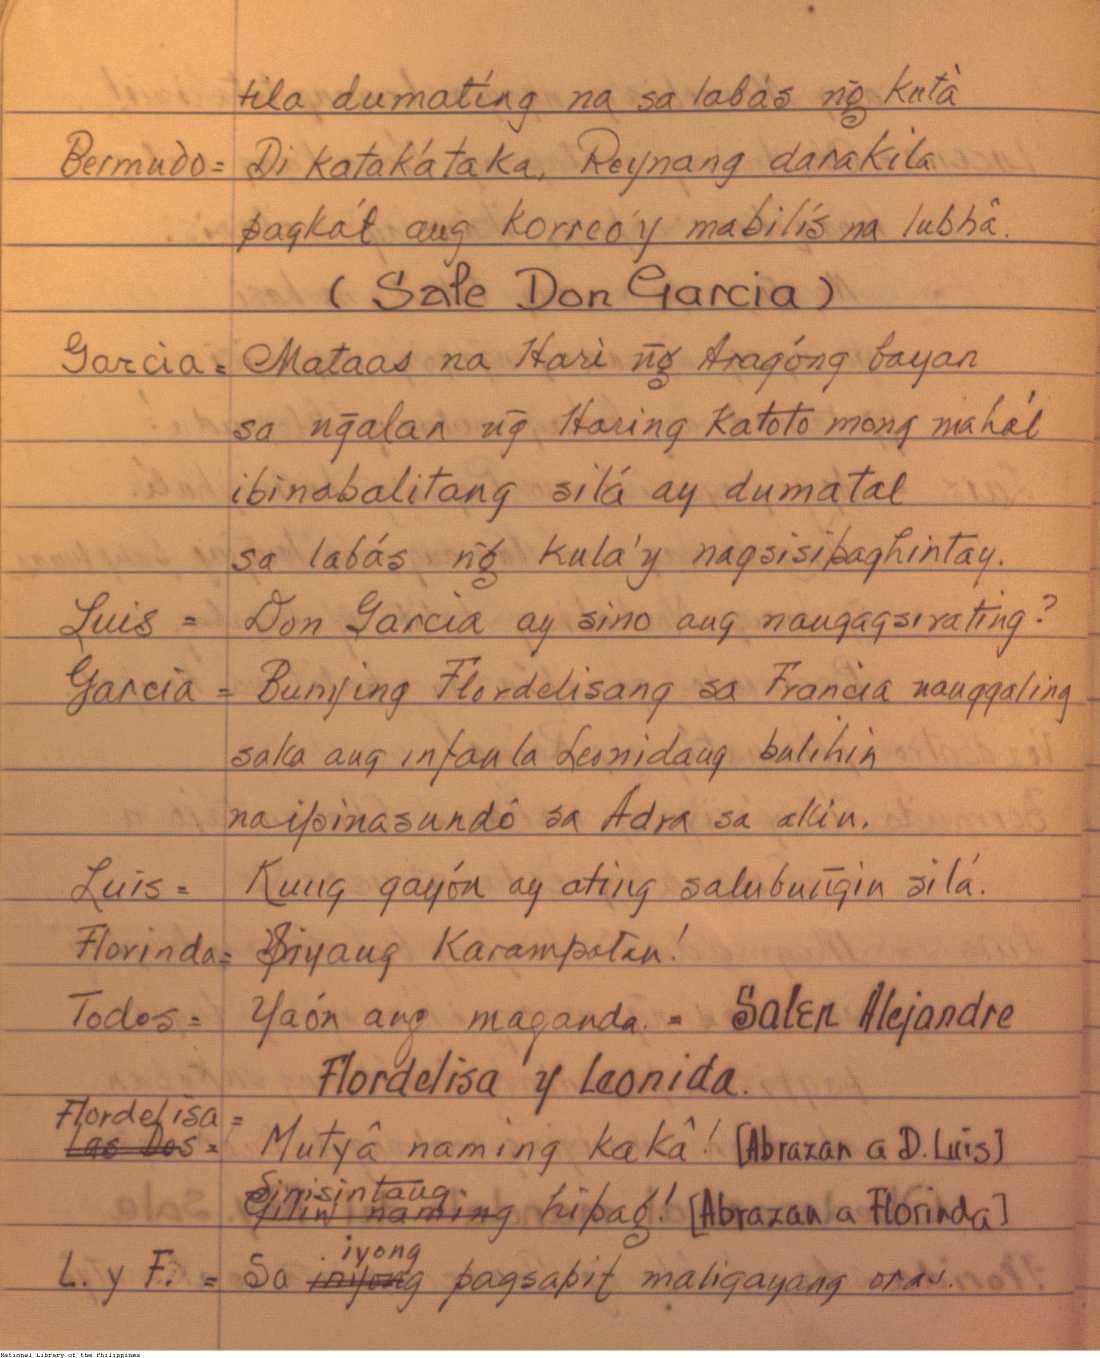 tila dumatíng na sa labás ng̃ kutà
Bermudo = Di katakátaka, Reynang darakila
pagká't ang korreo'y mabilís na lubhâ.
(Sale Don Garcia)
Garcia = Mataas na Hari ng̃ Aragóng bayan
sa ng̃alan ng̃ Haring katoto mong mahál
ibinabalitang silá ay dumatal
sa labás ng̃ kuta'y nagsisipaghintay.
Luis = Don Garcia ay sino ang nangagsirating?
Garcia = Bunying Flordelisang sa Francia nanggaling
saka ang infanta Leonidang butihin
naipinasundô sa Adra sa akin.
Luis = Kung gayón ay ating salubung̃in silá.
Florinda = Siyang karampatan!
Todos = Yaón ang maganda. = Salen Alejandre
Flordelisa y Leonida.
Flordelisa =
Las Dos = Mutyâ naming kakâ! [Abrazan a D. Luis]
Sinisintang
Giliw naming hipag! [Abrazan a Florinda]
iyong
L. y F. = Sa inyong pagsapit maligayang oras.
National Library of the Philippines